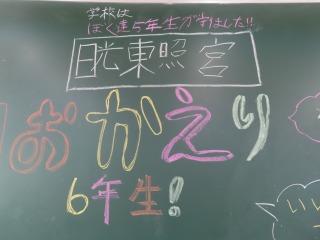 学校は
ぼく達5年生が守りました!!
日光東照宮
おかえり
6年生!